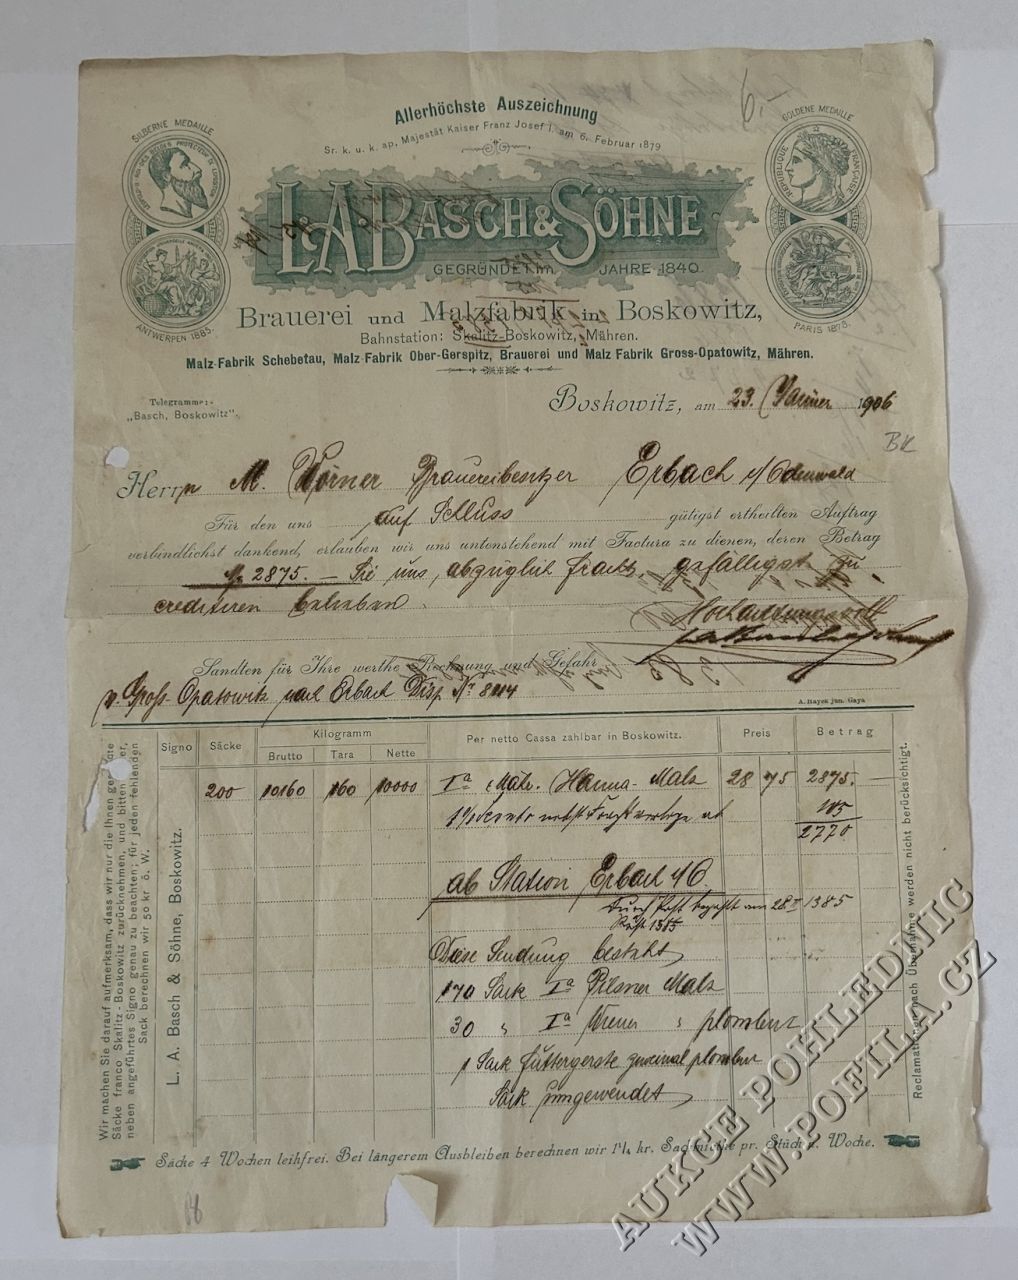 Allerhöchste Auszeichnung
Sr. k. u. k. ap. Majestät Kaiser Franz Josef I. am 6. Februar 1879
SILBERNE MEDAILLE
GOLDENE MEDAILLE
RÉPUBLIQUE FRANÇAISE
L.A. BASCH & SÖHNE
GEGRÜNDET im JAHRE 1840.
ANTWERPEN 1885.
PARIS 1878.
Brauerei und Malzfabrik in Boskowitz,
Bahnstation: Skalitz-Boskowitz, Mähren.
Malz-Fabrik Schebetau, Malz-Fabrik Ober-Gerspitz, Brauerei und Malz Fabrik Gross-Opatowitz, Mähren.
Telegramme:
„Basch, Boskowitz“.
Boskowitz, am 23. Jänner 1906
BK
Herrn M. Körner Brauereibesitzer Erbach i/Odenwald
Für den uns auf Schluss gütigst ertheilten Auftrag
verbindlichst dankend, erlauben wir uns untenstehend mit Factura zu dienen, deren Betrag
2875.— Sie uns, abzüglich Fracht, gefälligst zu
creditiren belieben.
Hochachtungsvoll
Sandten für Ihre werthe Rechnung und Gefahr
p. Gross-Opatowitz nach Erbach Disp. Nr
A. Hayek jun. Gaya
Signo Säcke Kilogramm Per netto Cassa zahlbar in Boskowitz. Preis Betrag
Brutto Tara Nette
200 10160 160 10000 Ia Mähr. Hanna-Malz 28 75 2875.
105
2770.
ab Station Erbach i/O.
1385
Diese Sendung besteht
170 Sack Ia Pilsner Malz
30 " Ia Wiener " plombirt
1 Sack Futtergerste zweimal plombirt
Sack umgewendet
Wir machen Sie darauf aufmerksam, dass wir nur die Ihnen
Säcke franco Skalitz-Boskowitz zurücknehmen, und bitten
neben angeführtes Signo genau zu beachten; für jeden fehlenden
Sack berechnen wir 50 kr ö. W.
L. A. Basch & Söhne, Boskowitz.
Reclamationen nach Übernahme werden nicht berücksichtigt.
Säcke 4 Wochen leihfrei. Bei längerem Ausbleiben berechnen wir 1½ kr. Sackmiethe pr. Stück u. Woche.
AUKCE POHLEDNIC
WWW.POFILA.CZ